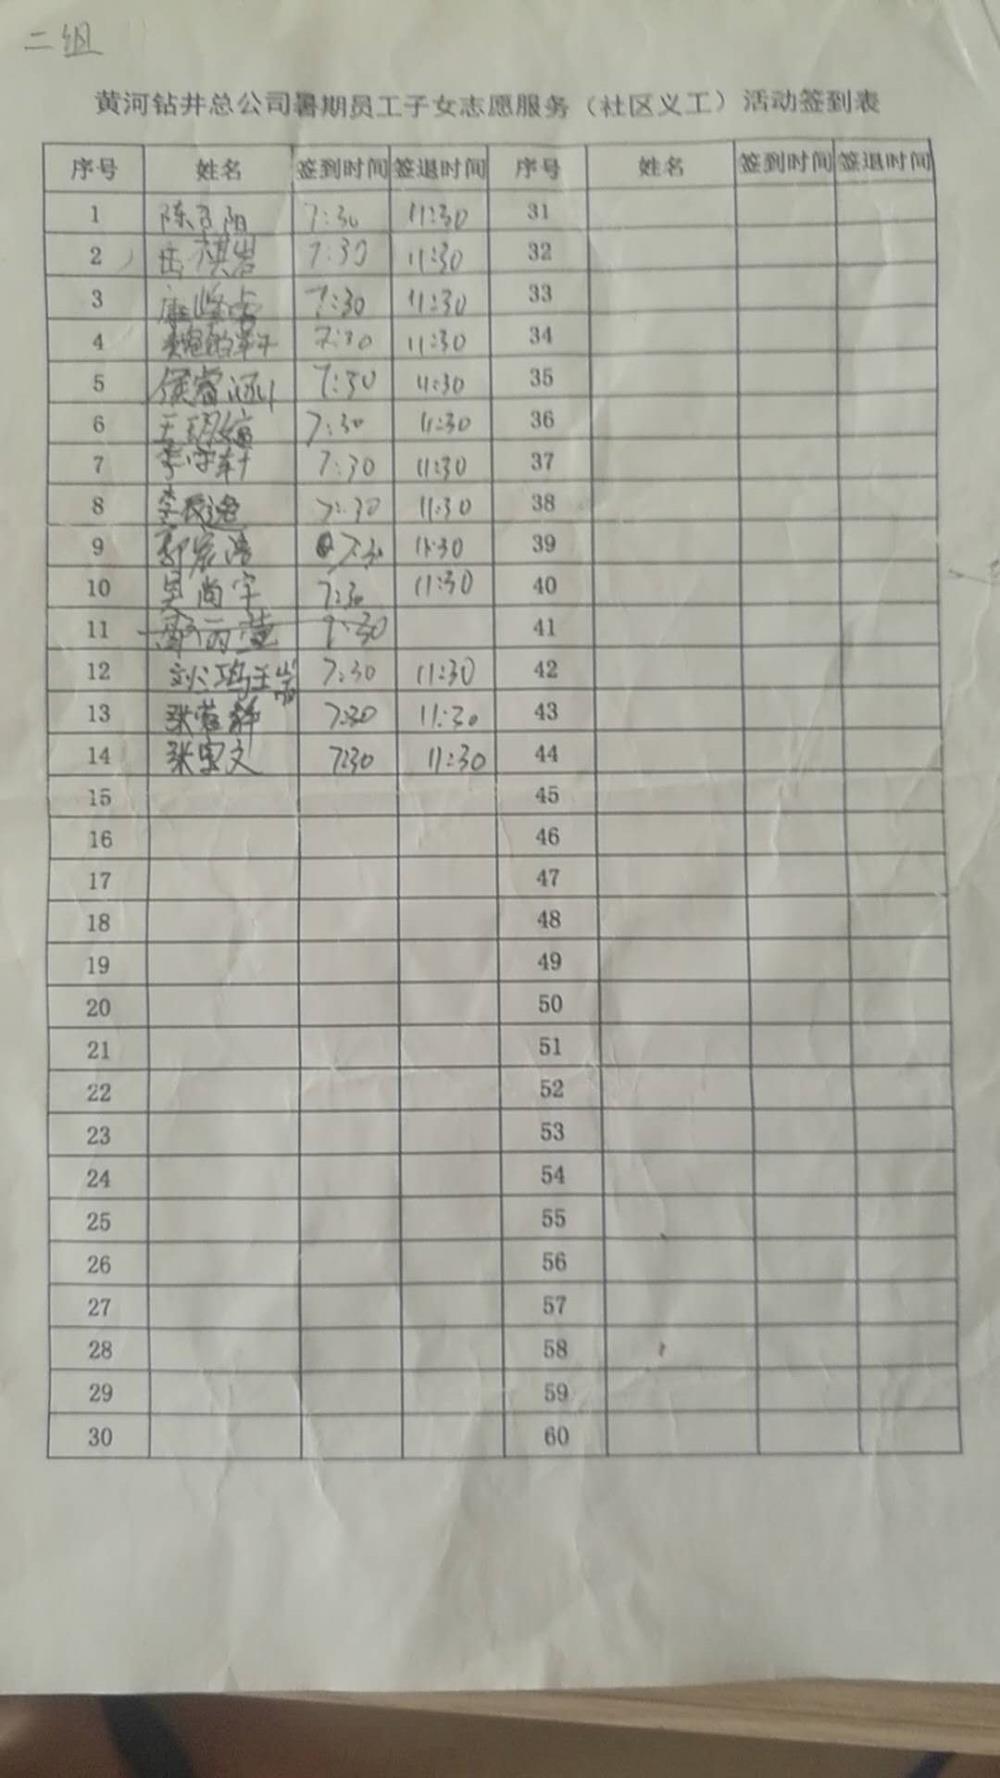 二组
黄河钻井总公司暑期员工子女志愿服务（社区义工）活动签到表
序号 姓名 签到时间 签退时间 序号 姓名 签到时间 签退时间
1 7:30 11:30 31
2 岳祺岩 7:30 11:30 32
3 7:30 11:30 33
4 7:30 11:30 34
5 侯睿涵 7:30 11:30 35
6 王玥婷 7:30 11:30 36
7 李宇轩 7:30 11:30 37
8 李辰逸 7:30 11:30 38
9 郭宸浩 7:30 11:30 39
10 吴尚宇 7:30 11:30 40
11 7:30 41
12 7:30 11:30 42
13 7:30 11:30 43
14 张宝文 7:30 11:30 44
15 45
16 46
17 47
18 48
19 49
20 50
21 51
22 52
23 53
24 54
25 55
26 56
27 57
28 58
29 59
30 60